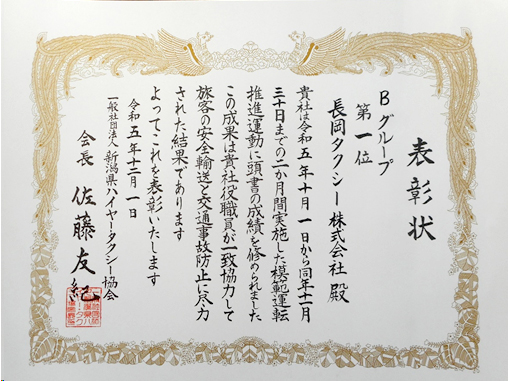 表彰状
Bグループ
第一位
長岡タクシー株式会社 殿
貴社は令和五年十月一日から同年十一月
三十日までの二か月間実施した模範運転
推進運動に頭書の成績を修められました
この成果は貴社役職員が一致協力して
旅客の安全輸送と交通事故防止に尽力
された結果であります
よってこれを表彰いたします
令和五年十二月一日
一般社団法人 新潟県ハイヤー・タクシー協会
会長 佐藤友紀